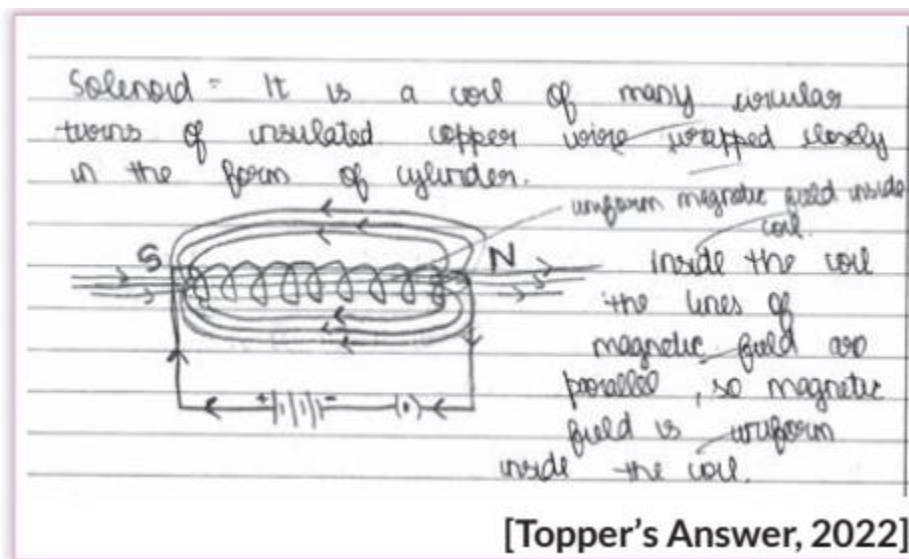 Solenoid = It is a coil of many circular
turns of insulated copper wire wrapped closely
in the form of cylinder.
uniform magnetic field inside
coil.
S
N
inside the coil
the lines of
magnetic field are
parallel, so magnetic
field is uniform
inside the coil.
+ -
(•)
[Topper's Answer, 2022]